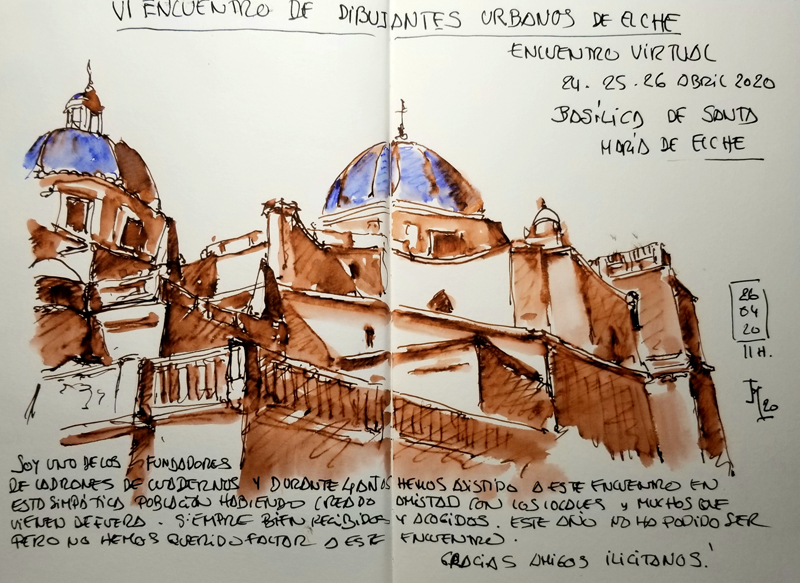 VI ENCUENTRO DE DIBUJANTES URBANOS DE ELCHE
ENCUENTRO VIRTUAL
24. 25. 26 ABRIL 2020
BASÍLICA DE SANTA
MARÍA DE ELCHE
26
04
20
11 H.
20
SOY UNO DE LOS FUNDADORES
DE LADRONES DE CUADERNOS Y DURANTE 4 AÑOS HEMOS ASISTIDO A ESTE ENCUENTRO EN
ESTA SIMPÁTICA POBLACIÓN HABIENDO CREADO AMISTAD CON LOS LOCALES Y MUCHOS QUE
VIENEN DE FUERA. SIEMPRE BIEN RECIBIDOS Y ACOGIDOS. ESTE AÑO NO HA PODIDO SER
PERO NO HEMOS QUERIDO FALTAR A ESTE ENCUENTRO.
GRACIAS AMIGOS ILICITANOS!